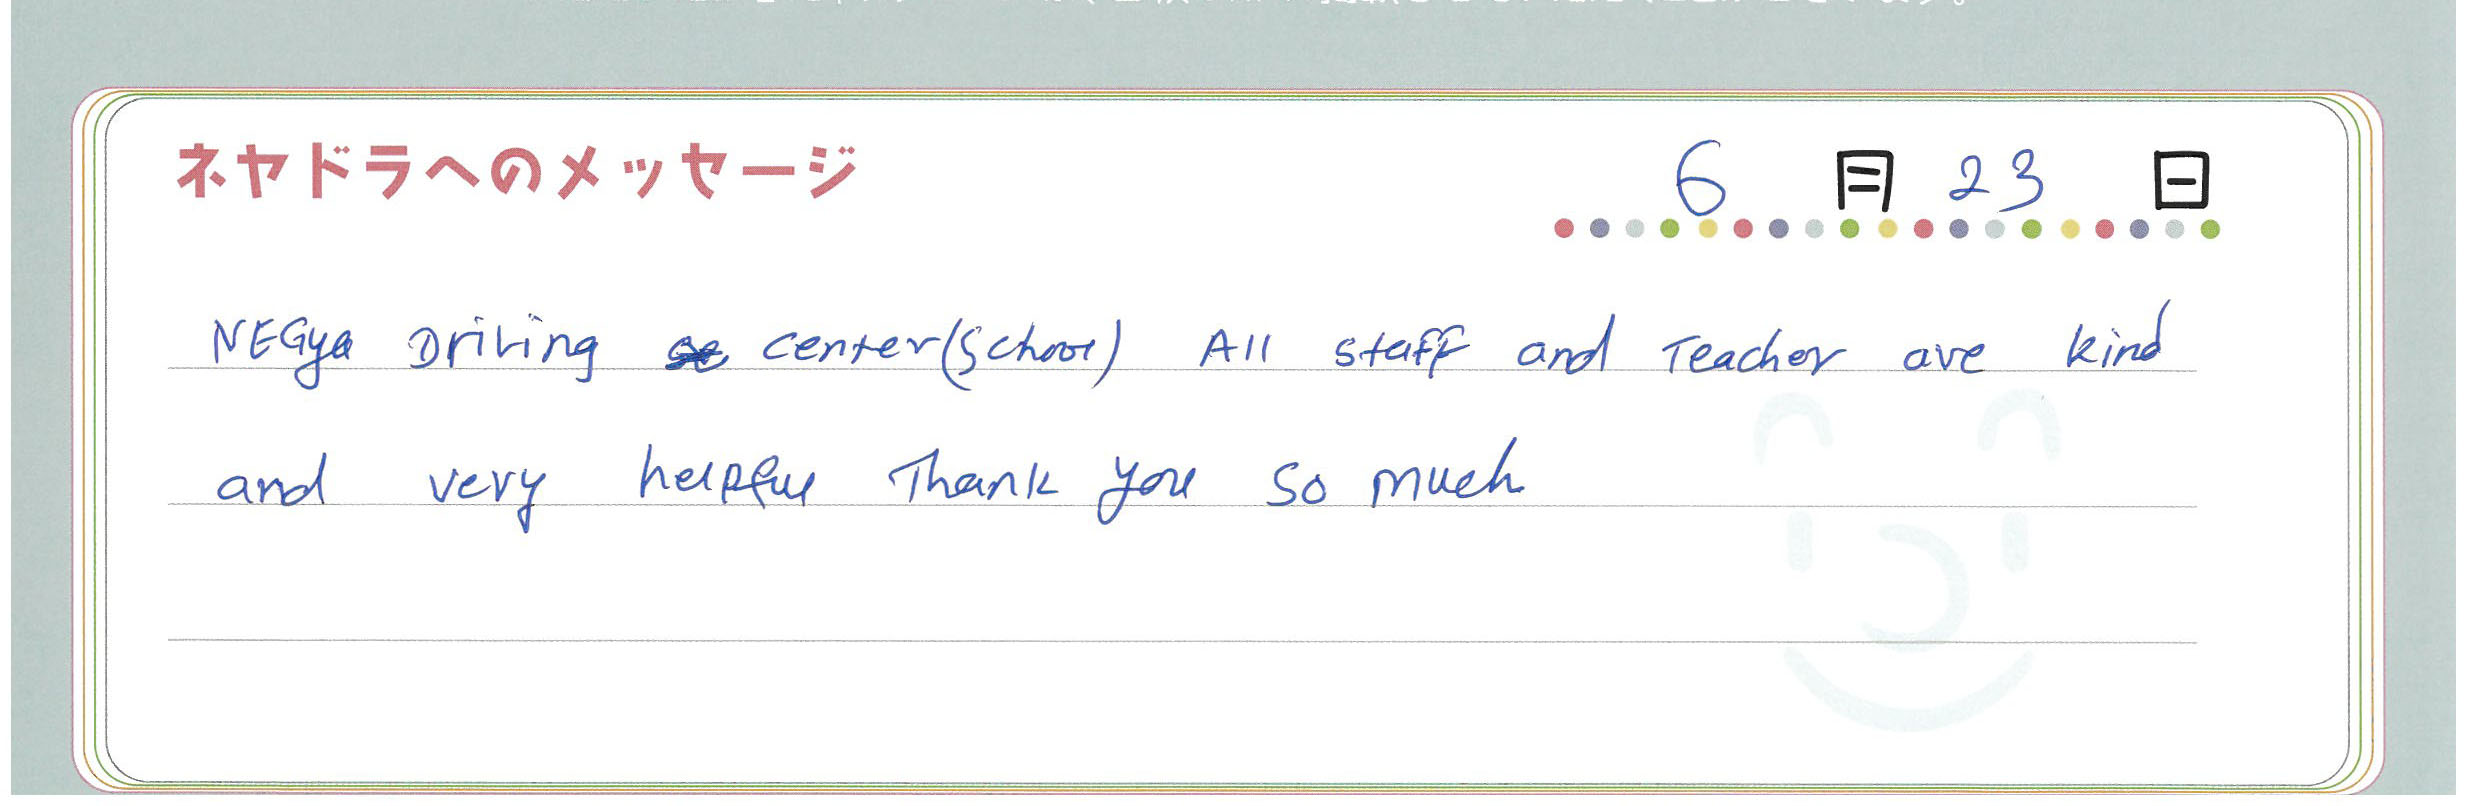 ネヤドラへのメッセージ
6月23日
NEGya Driving center(School) All staff and Teacher are kind
and very helpful Thank you so much